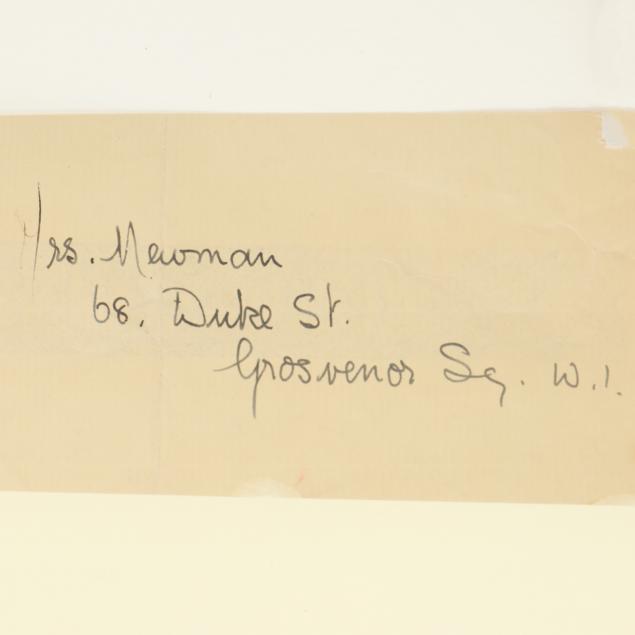 Mrs. Newman
68. Duke St.
Grosvenor Sq. W.1.